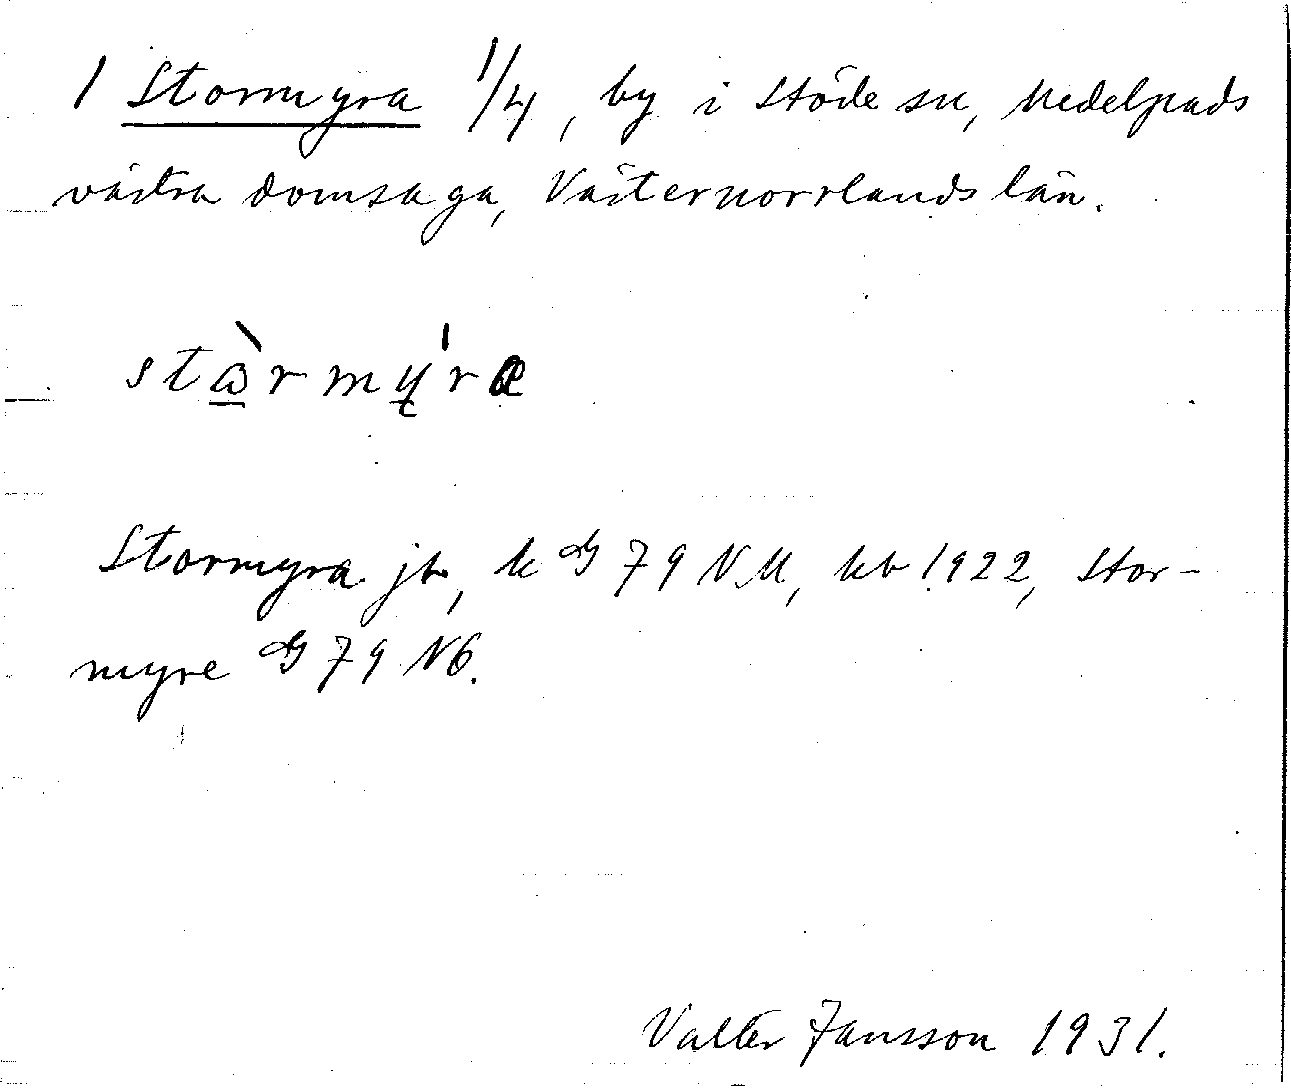 1 Stormyra 1/4, by i Stöde sn, Medelpads
västra domsaga, Västernorrlands län.
Stormyra jb, k 79 NM, kb 1922, Stor-
myre 79 NO.
Valter Jansson 1931.